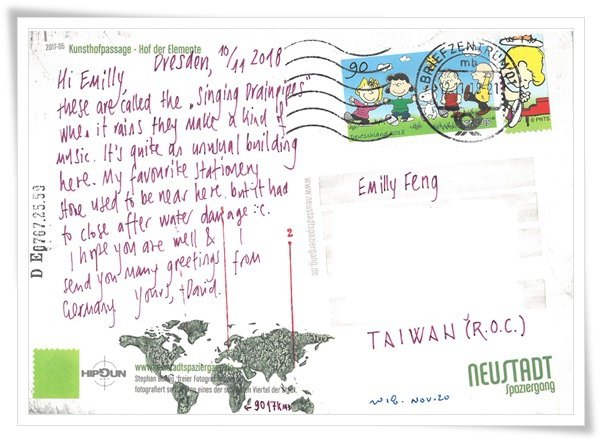 2017-05 Kunsthofpassage - Hof der Elemente
Dresden, 10/11 2018
Hi Emilly
these are called the „Singing Drainpipes"
when it rains they make a kind of
music. It's quite an unusual building
here. My favourite stationery
store used to be near here. but it had
to close after water damage :c.
I hope you are well & I
send you many greetings from
Germany yours, +David.
90
Deutschland 2018
BRIEFZENTRUM 01
mb
© PNTS
Emilly Feng
TAIWAN (R.O.C.)
www.neustadtspaziergang.de
2
D E0767.25.59
HIPGUN
www.neustadtspaziergang.de
Stephan Böhlig, freier Fotograf
fotografiert seit eines der schönsten Viertel der
← 9017KMS
NEUSTADT
Spaziergang
NOV.20